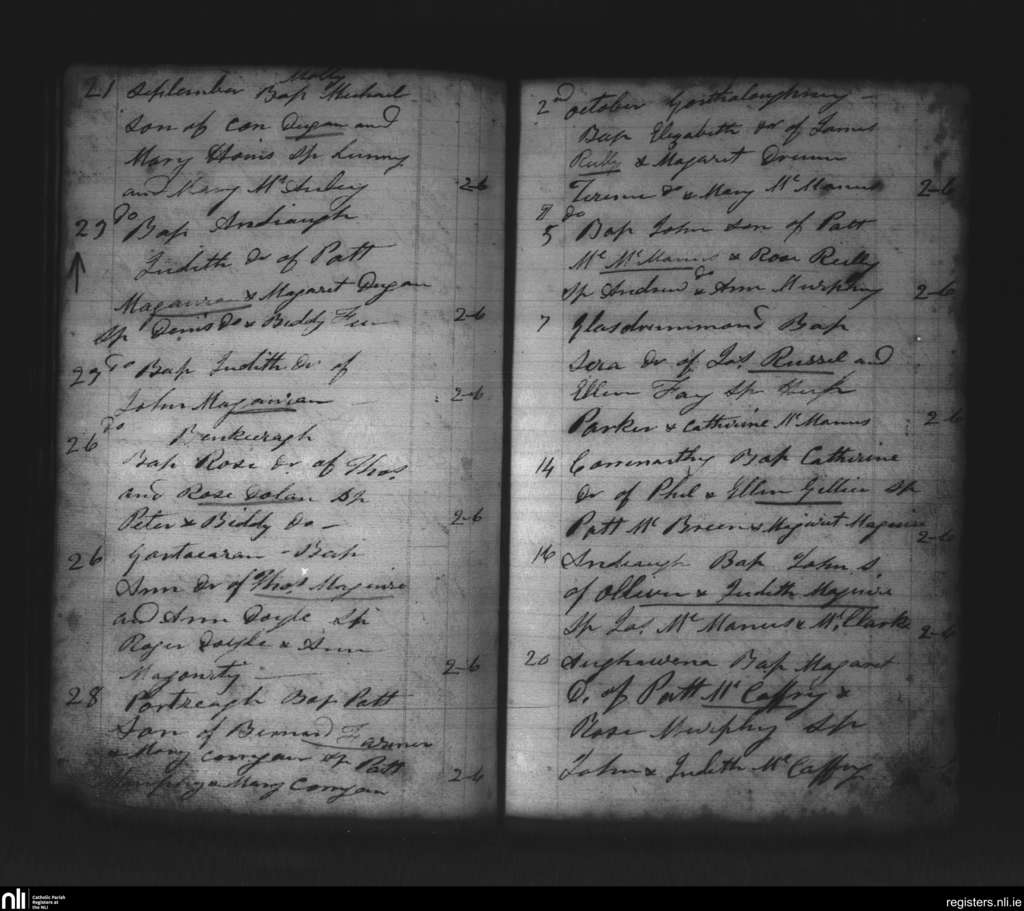 21 September Bap Michael
Molly
Son of Con Dugan and
Mary Sp Lunny
and Mary Mc
2-6
23 Do Bap Andiaugh
Judith Dr of Patt
Magauran & Magaret Dugan
Sp Denis Do & Biddy Fee
2-6
23 Do Bap Judith Dr of
John Magauran
2-6
26 Do
Bap Rose Dr of Thos.
and Rose Dolan Sp
Peter & Biddy Do
2-6
26 Gortacaran - Bap
Ann Dr of Thos. Maguire
and Ann Doyle Sp
Roger Doyle & Ann
2-6
28 Portreagh Bap Patt
Son of Bernard Farmer
& Mary Corrygan Sp Patt
& Mary Corrygan
2-6
2nd October
Bap Elizabeth Dr of James
Reilly & Magaret
Terence Do & Mary McManus
2-6
5 Do Bap John Son of Patt
Mc McManus & Rose Reilly
Sp Andrew Do & Ann Murphy
2-6
7 Glasdrummond Bap
Sera Dr of Jas. Russel and
Ellen Fay Sp Hugh
Parker & Catherine McManus
2-6
14 Bap Catherine
Dr of Phil & Ellen Sp
Patt Mc Breen & Magaret Maguire
2-6
16 Andiaugh Bap John S
of Olliver & Judith Maguire
Sp Jas. McManus & Clarke
2-6
20 Aughawena Bap Magaret
D. of Patt McCaffry &
Rose Murphy Sp
John & Judith McCaffry
nli
Catholic Parish
Registers at
the NLI
registers.nli.ie